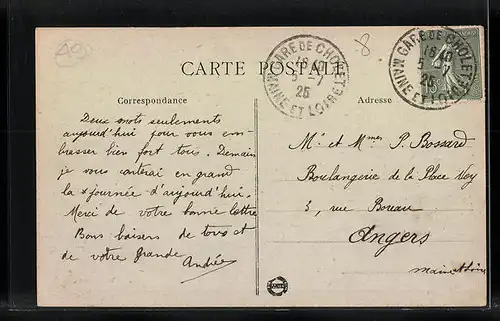 CARTE POSTALE
Correspondance
Deux mots seulements
aujourd'hui pour vous em-
brasser bien fort tous. Demain
je vous conterai en grand
la journée d'aujourd'hui.
Merci de votre bonne lettre
Bons baisers de tous et
de votre grande
Andrée
Adresse
Mr et Mmes P. Bossard
Boulangerie de la Place Ney
3, rue Boreau
Angers
GARE DE CHOLET
16
5 -1
25
MAINE ET LOIRE
GARE DE CHOLET
16
5
25
MAINE ET LOIRE